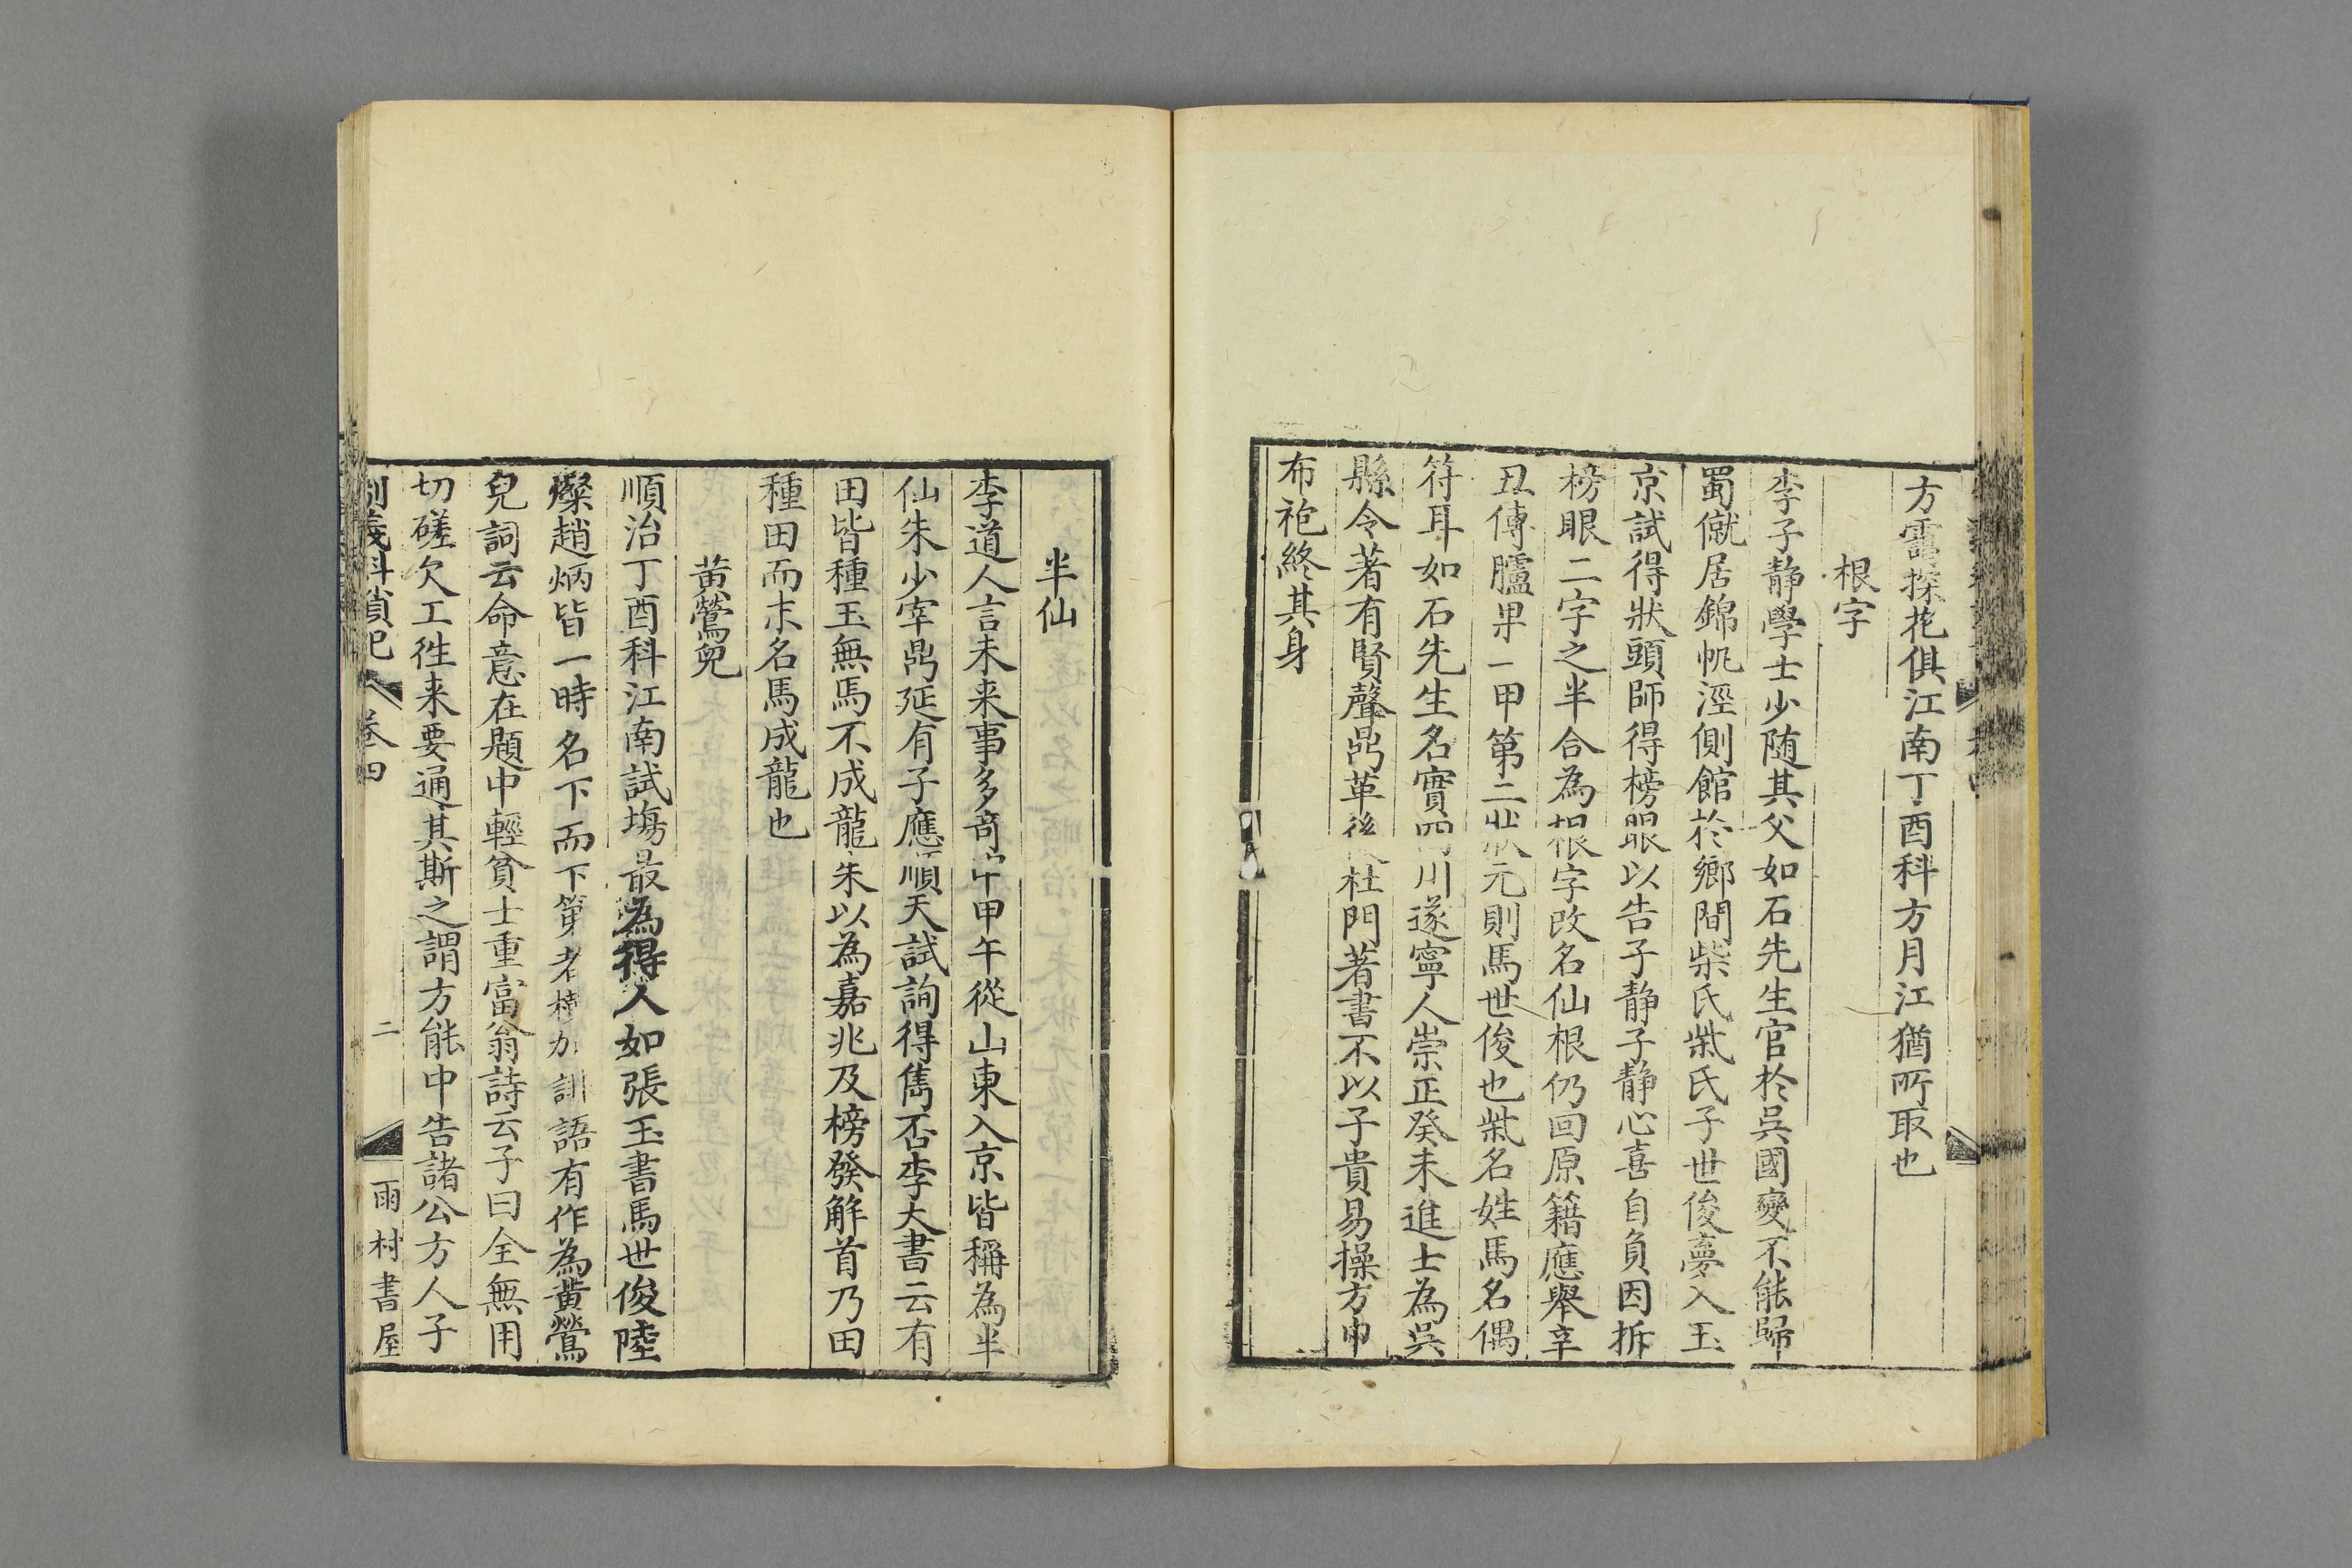 方靄探花俱江南丁酉科方月江猶所取也
根字
李子静學士少随其父如石先生官於吳國變不能歸
蜀僦居錦帆涇側館於鄉間柴氏柴氏子世俊夢入玉
京試得狀頭師得榜眼以告子静子静心喜自負因拆
榜眼二字之半合為根字改名仙根仍回原籍應舉辛
丑傳臚果一甲第二狀元則馬世俊也柴名姓馬名偶
符耳如石先生名實四川遂寧人崇正癸未進士為吳
縣令著有賢聲鼎革後杜門著書不以子貴易操方巾
布袍終其身
半仙
李道人言未来事多奇中甲午從山東入京皆稱為半
仙朱少宰鼎延有子應順天試詢得雋否李大書云有
田皆種玉無馬不成龍朱以為嘉兆及榜發解首乃田
種田而末名馬成龍也
黄鶯兒
順治丁酉科江南試塲最為得人如張玉書馬世俊陸
燦趙炳皆一時名下而下第者榜加訓語有作為黄鶯
兒詞云命意在題中輕貧士重富翁詩云子曰全無用
切磋欠工徃来要通其斯之謂方能中告諸公方人子
制義科瑣記 卷四 二 雨村書屋